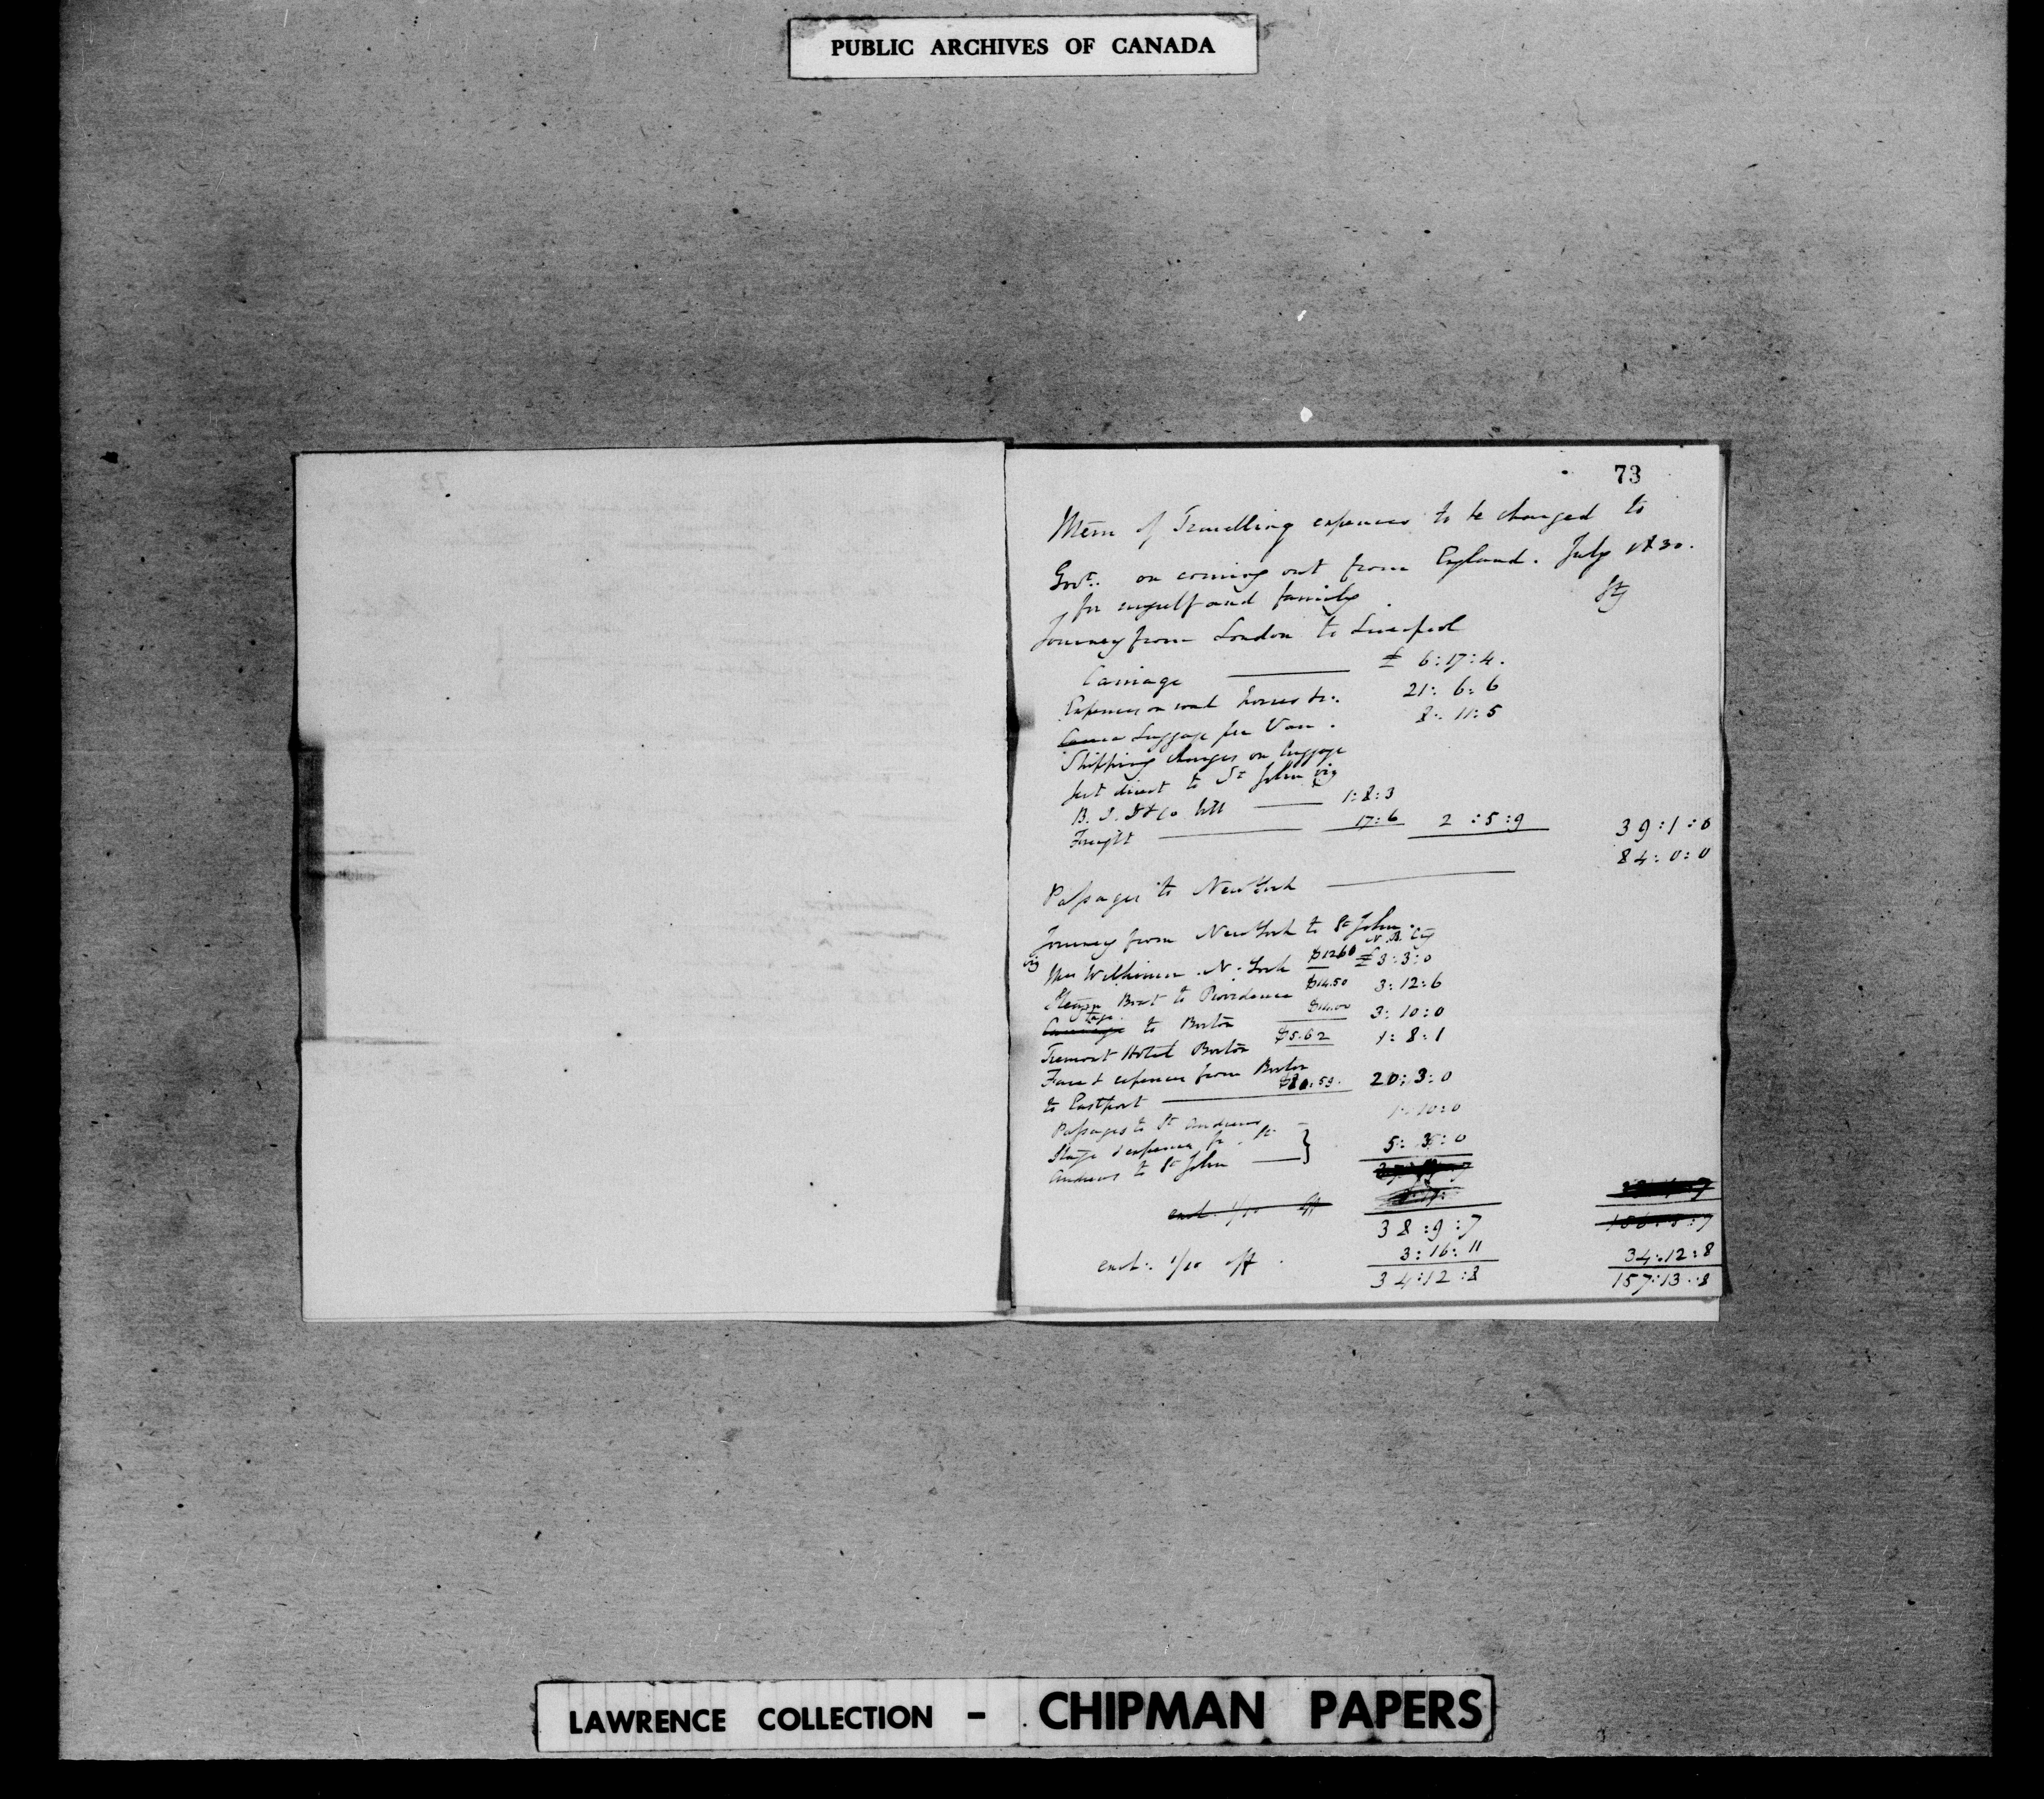 PUBLIC ARCHIVES OF CANADA
73
Mem of Travelling expences to be charged to
Govt. on coming out from England. July 1830.
for myself and family Stg
Journey from London to Liverpool
Carriage £ 6:17:4.
Expences on road horses &c. 21: 6: 6
Luggage per Van. 8: 11: 5
Shipping charges on luggage
sent direct to St John viz
B. I. & Co bill 1:8:3
Freight 17:6 2:5:9 39:1:0
Passages to New York 84:0:0
Journey from New York to St John.
viz N.B. Cy
Mrs Wilkinson N. York $12.60 £3:3:0
Steam Boat to Providence $14.50 3:12:6
Stage to Boston $14.00 3:10:0
Tremont Hotel Boston $5.62 1:8:1
Fare & expences from Boston
to Eastport $80.59. 20:3:0
Passages to St Andrews 1:10:0
Stage & expences fr. St
Andrews to St John 5: 3: 0
exch. 1/10 off
38:9:7 156:5:7
exch. 1/10 off 3:16:11 34:12:8
34:12:8 157:13:8
LAWRENCE COLLECTION - CHIPMAN PAPERS